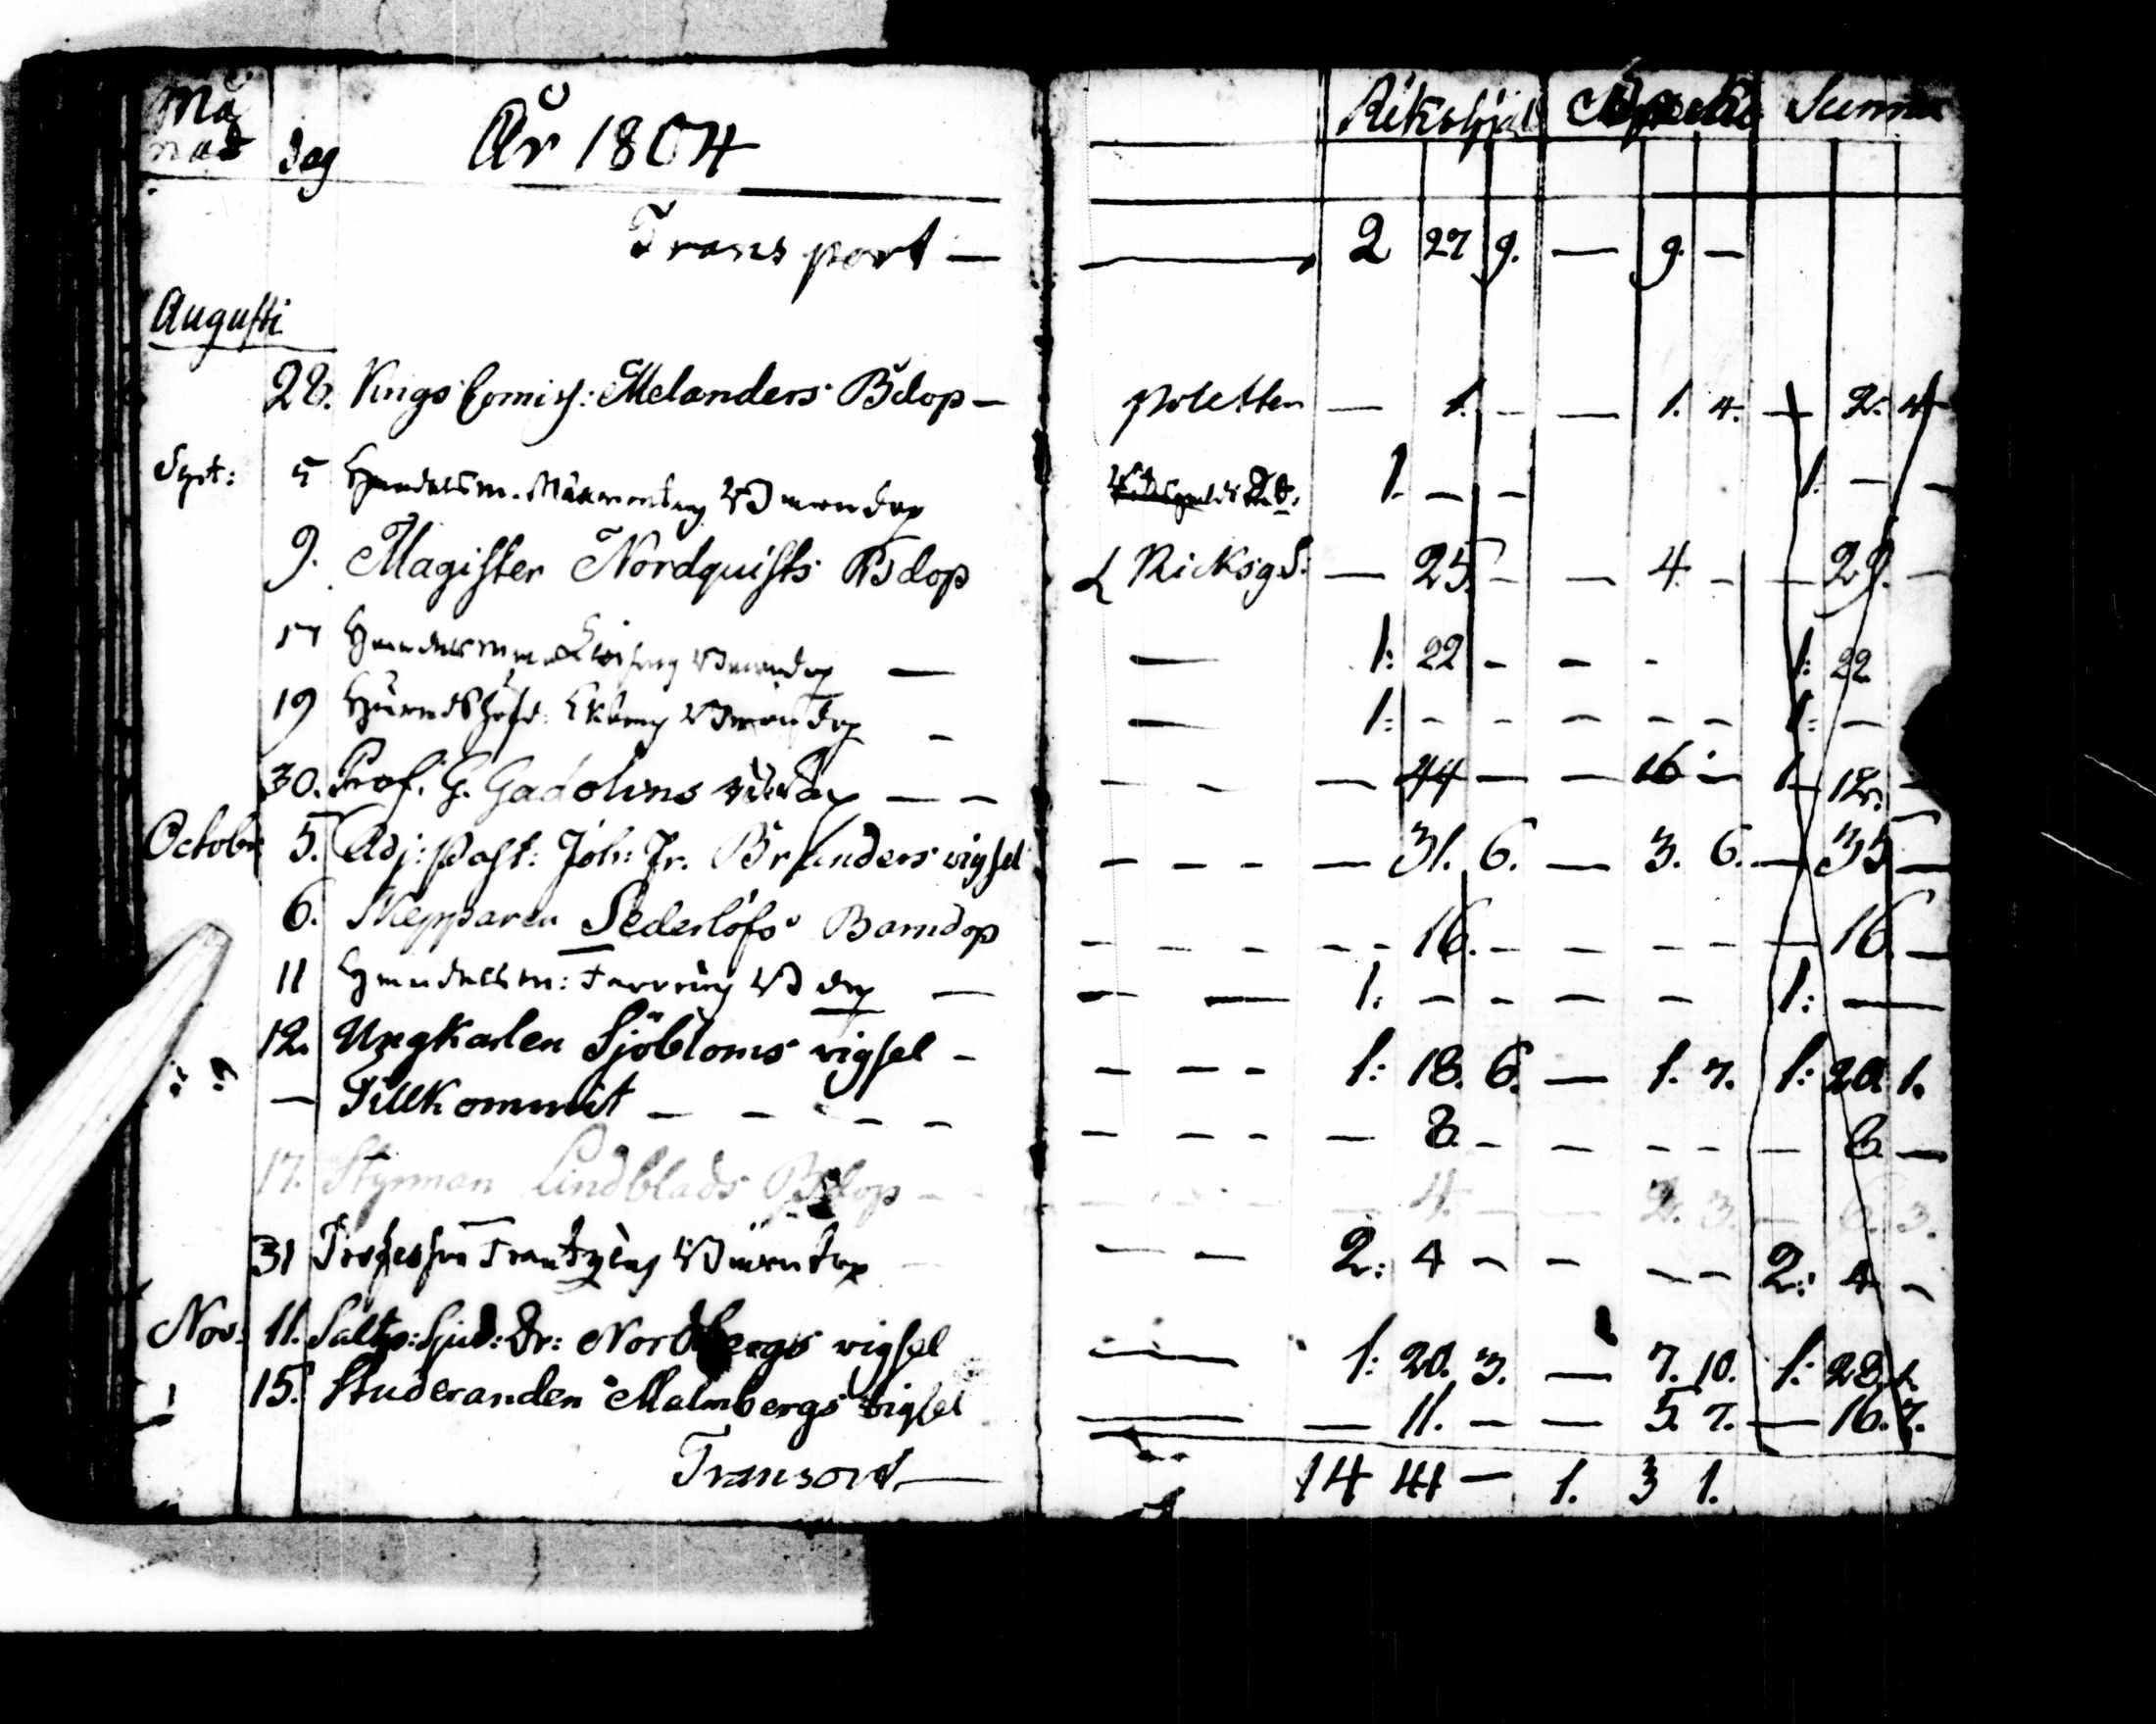 Månad dag År 1804 Riksgäld Specie Summa
Transport — 2 27 9. — 9. —
Augusti
28. Krigs Comiss: Melanders Bdop — poletten — 1. - — 1. 4. — 2. 4
Sept: 5 Handelsm. Barndop 1. — - 1. — -
9. Magister Nordquists Bdop Ricksg: — 25. - — 4. - — 29. —
17 Barndop — — 1: 22 - - - 1: 22
19 Häradshöfd: Ekbergs Barndop - — 1: - - - - - 1: —
30. Prof. G. Gadolins Bdop — - - - — 44 — — 16 - 1 12. -
October 5. Adj: Past: Joh: Fr. Branders vigsel - - - — 31. 6. — 3. 6. — 35 —
6. Skepparen Sederlöfs Barndop - - - - - 16. - - - - — 16. —
11 Handelsm: B dop — — — 1: - - - - 1: —
12. Ungkarlen Sjöbloms vigsel - - - - 1: 18. 6. — 1. 7. 1: 20. 1.
— Tillkommit - - - - - - - — 8. - - - - — 8. —
17. Styrman Lindblads Bdop - - - - — 4. - — 2. 3. — 6. 3.
31 Professor Barndop — — 2: 4 - - - - 2: 4 -
Nov: 11. Saltp: Sjud: Dr: Nordbergs vigsel — 1: 20. 3. — 7. 10. 1: 28. 1.
15. Studeranden Malmbergs vigsel — — 11. - — 5. 7. — 16. 7.
Transort — 14 41 — 1. 3 1.